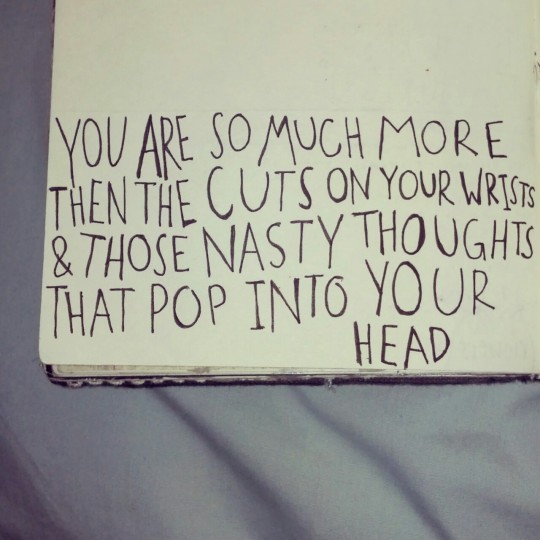 YOU ARE SO MUCH MORE
THEN THE CUTS ON YOUR WRISTS
& THOSE NASTY THOUGHTS
THAT POP INTO YOUR
HEAD